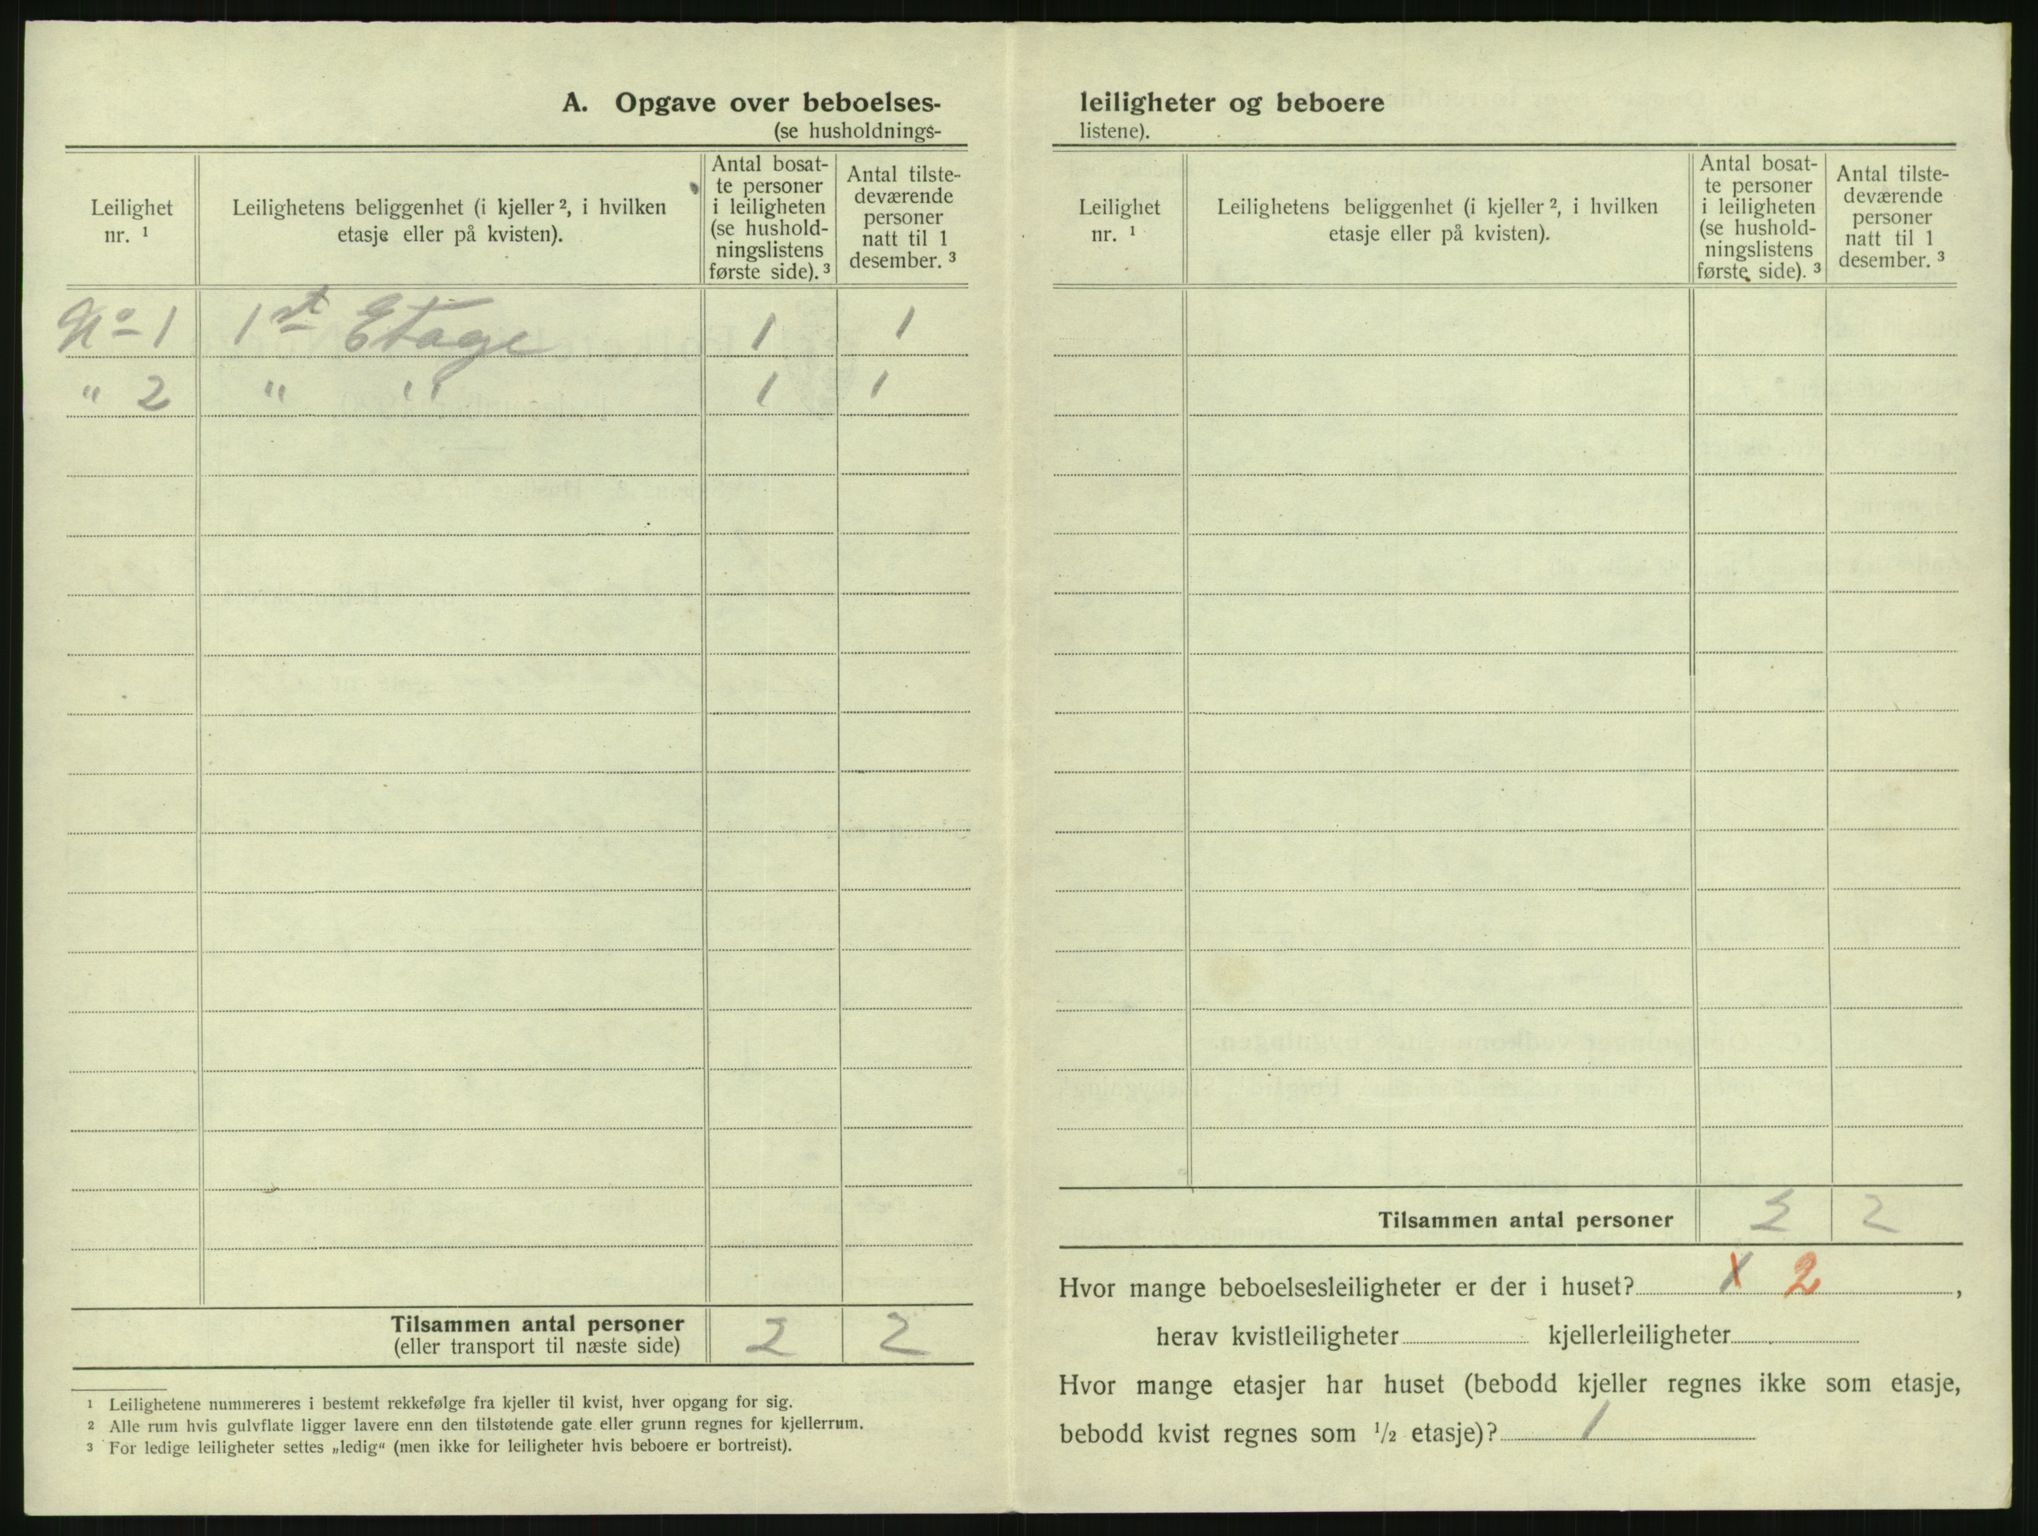 A. Opgave over beboelses-
(se husholdnings-
Leilighet nr. 1
Leilighetens beliggenhet (i kjeller 2, i hvilken
etasje eller på kvisten).
Antal bosat-
te personer
i leiligheten
(se hushold-
ningslistens
første side). 3
Antal tilste-
deværende
personer
natt til 1
desember. 3
No 1 1st Etage 1 1
" 2 " " 1 1
Tilsammen antal personer 2 2
(eller transport til næste side)
1 Leilighetene nummereres i bestemt rekkefølge fra kjeller til kvist, hver opgang for sig.
2 Alle rum hvis gulvflate ligger lavere enn den tilstøtende gate eller grunn regnes for kjellerrum.
3 For ledige leiligheter settes „ledig" (men ikke for leiligheter hvis beboere er bortreist).
leiligheter og beboere
listene).
Leilighet
nr. 1
Leilighetens beliggenhet (i kjeller 2, i hvilken
etasje eller på kvisten).
Antal bosat-
te personer
i leiligheten
(se hushold-
ningslistens
første side). 3
Antal tilste-
deværende
personer
natt til 1
desember. 3
Tilsammen antal personer 2 2
Hvor mange beboelsesleiligheter er der i huset? 2,
herav kvistleiligheter kjellerleiligheter
Hvor mange etasjer har huset (bebodd kjeller regnes ikke som etasje,
bebodd kvist regnes som 1/2 etasje)? 1